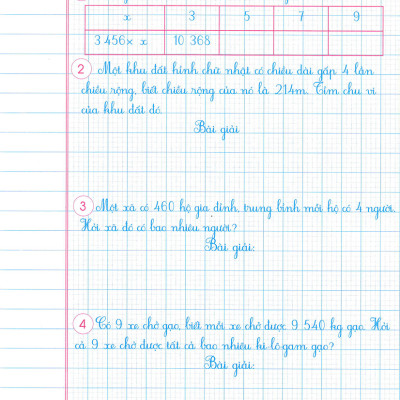 x 3 5 7 9
3 456 × x 10 368
2 Một khu đất hình chữ nhật có chiều dài gấp 4 lần
chiều rộng, biết chiều rộng của nó là 214m. Tìm chu vi
của khu đất đó.
Bài giải
3 Một xã có 460 hộ gia đình, trung bình mỗi hộ có 4 người.
Hỏi xã đó có bao nhiêu người?
Bài giải:
4 Có 9 xe chở gạo, biết mỗi xe chở được 9 540 kg gạo. Hỏi
cả 9 xe chở được tất cả bao nhiêu ki lô gam gạo?
Bài giải: